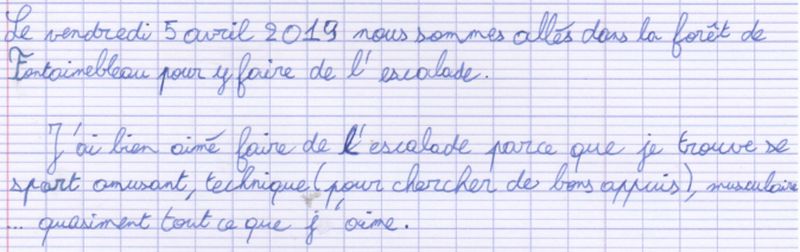 Le vendredi 5 avril 2019 nous sommes allés dans la forêt de
Fontainebleau pour y faire de l'escalade.
J'ai bien aimé faire de l'escalade parce que je trouve se
sport amusant, technique (pour chercher de bons appuis), musculaire
... quasiment tout ce que j'aime.